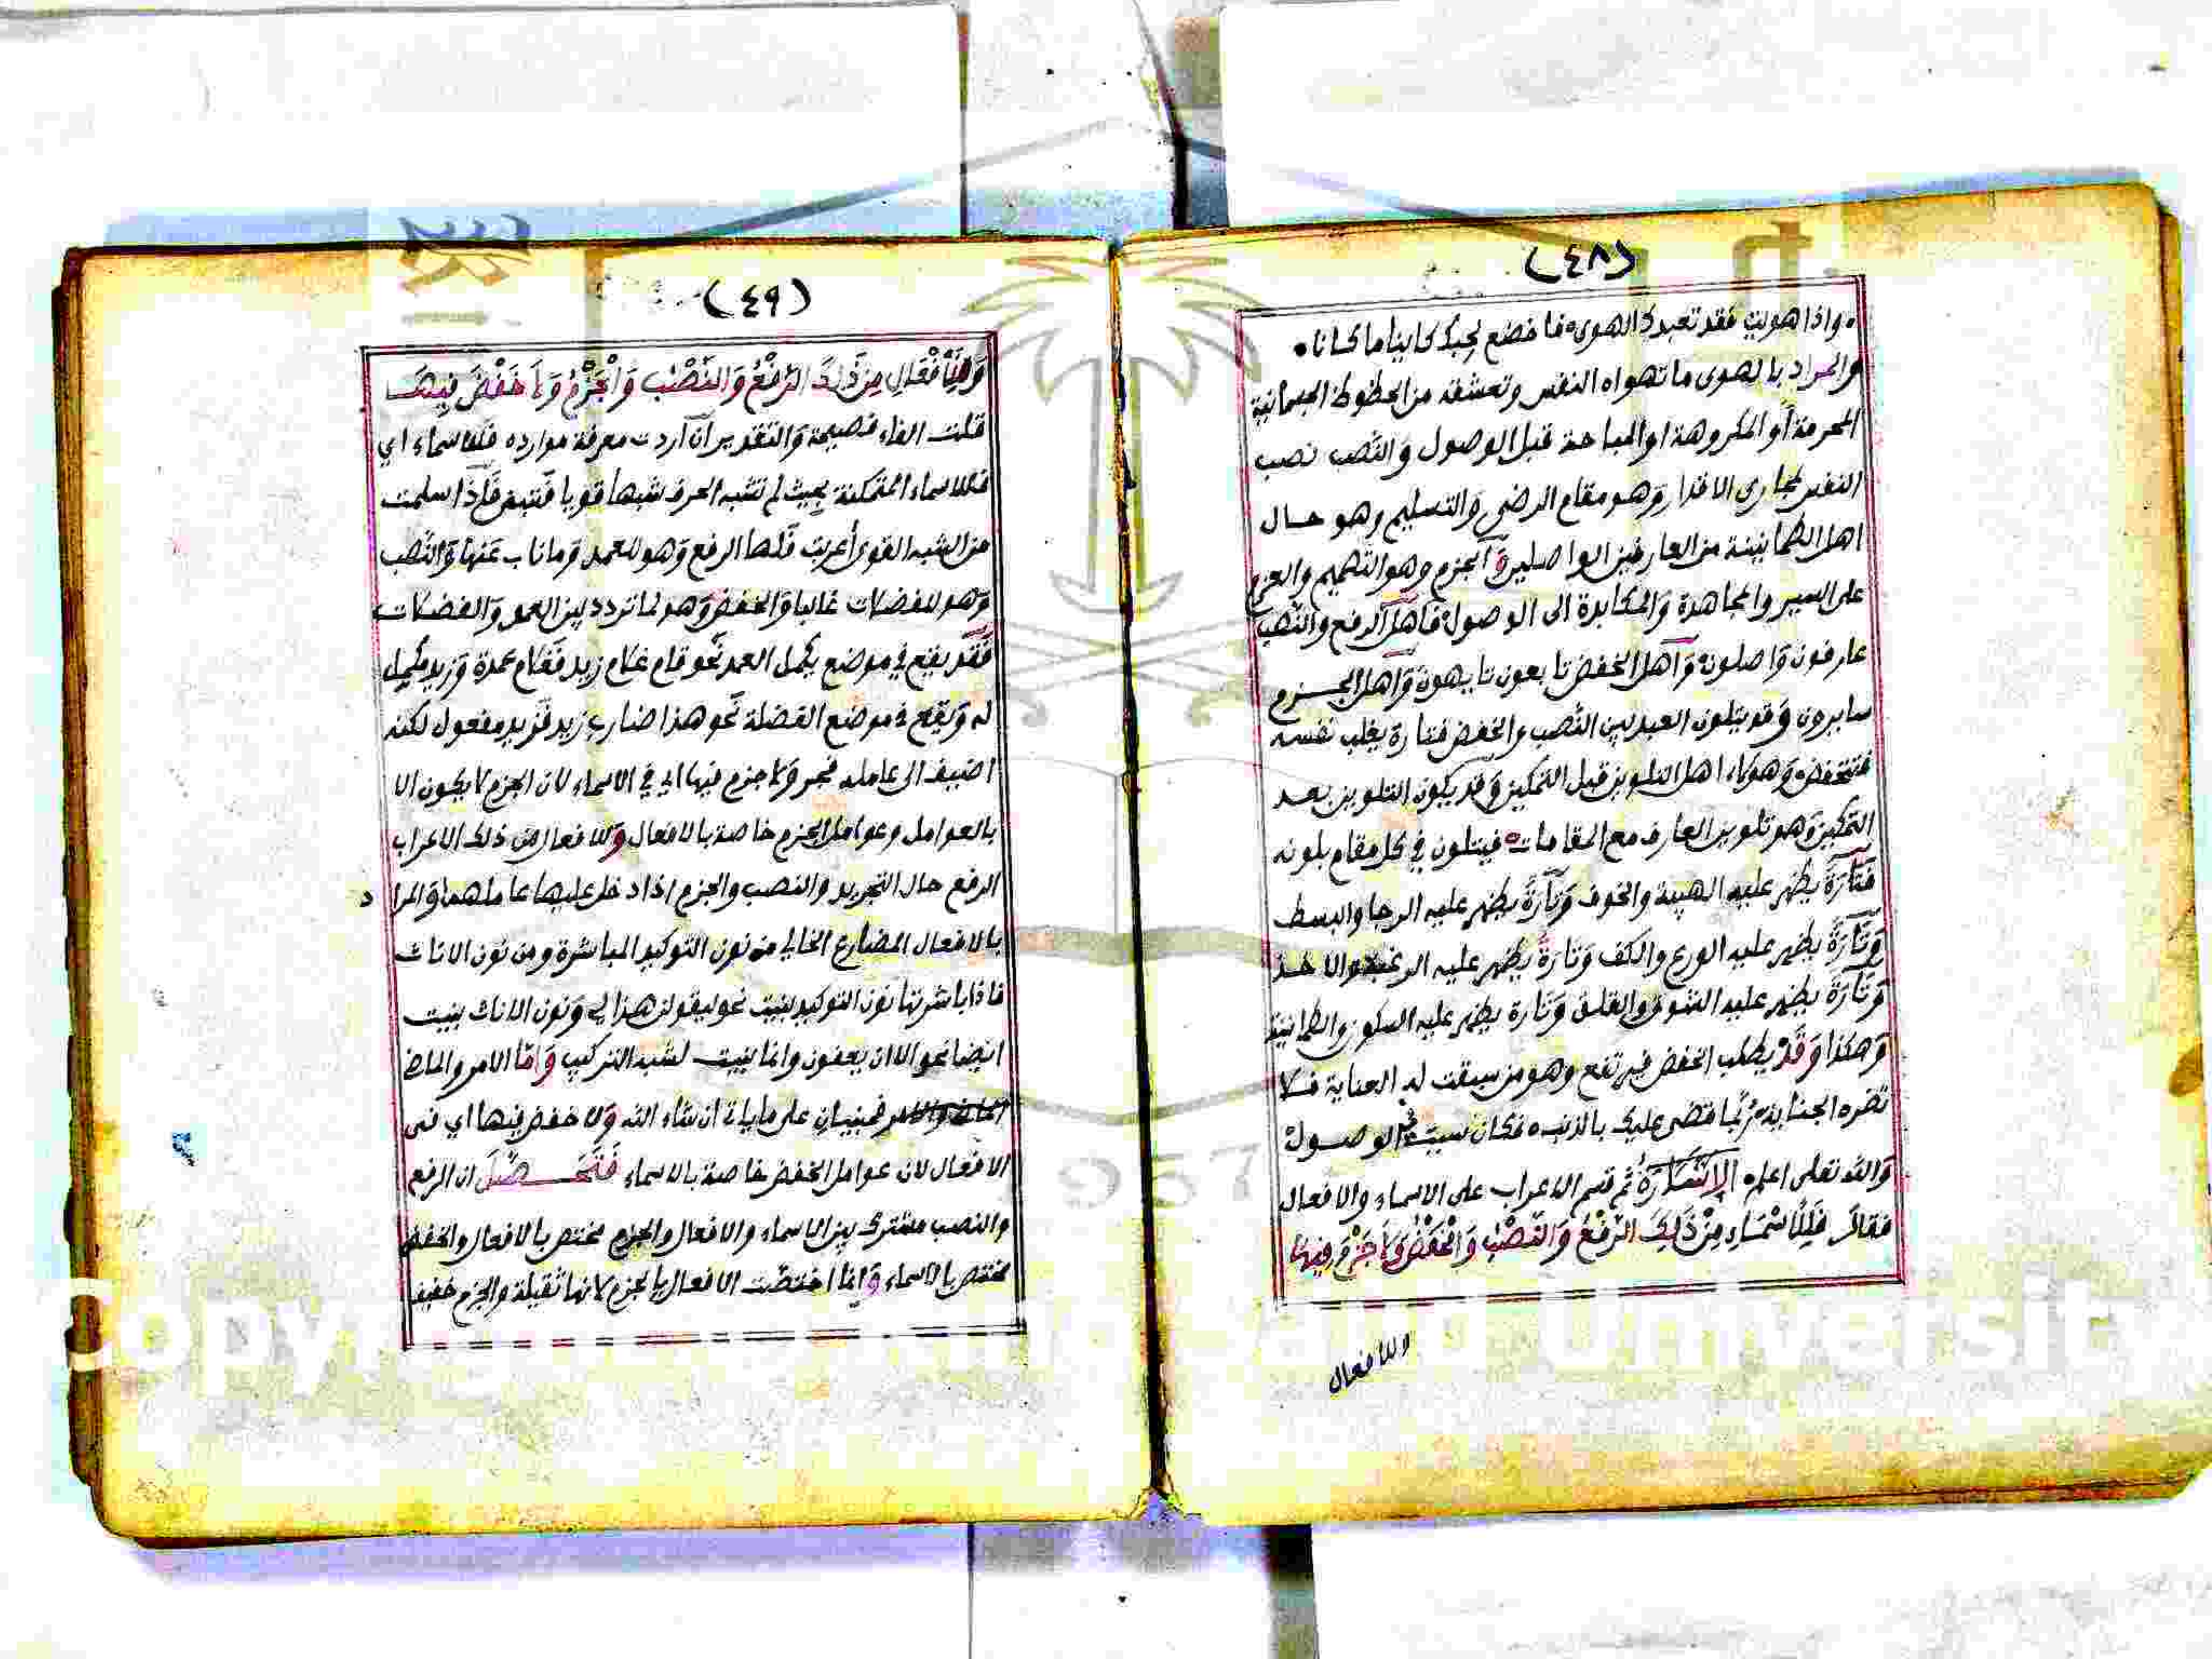 (٤٨)
• واذا هويت فقد تعبدك الهوى • فاخضع لحبك كاينا ما كانا •
والمراد بالهوى ما تهواه النفس وتعشقه من الحظوظ الجسمانية
المحرمة أو المكروهة او المباحة قبل الوصول والنصب نصب
النفس لمجارى الاقدار وهو مقام الرضى والتسليم وهو حال
اهل الطمانينة من العارفين الواصلين والجزم وهو التصميم والعزم
على السير والمجاهدة والمكابدة الى الوصول فاهل الرفع والنصب
عارفون واصلون واهل الخفض تابعون تايهون واهل الجزم
سايرون وقد يتلون العبد بين النصب والخفض فتارة يغلب نفسه
فتنخفض وهولاء اهل التلوين قبل التمكين وقد يكون التلوين بعد
التمكين وهو تلوين العارف مع المقامات فيتلون في كل مقام بلونه
فتارة يظهر عليه الهيبة والخوف وتارة يظهر عليه الرجا والبسط
وتارة يظهر عليه الورع والكف وتارة يظهر عليه الرغبة والاخذ
وتارة يظهر عليه الشوق والقلق وتارة يظهر عليه السكون والطمانينة
وهكذا وقد يطلب الخفض فيرتفع وهو من سبقت له العناية فلا
تضره الجناية ربما قضى عليك بالذنب فكان سبب في الوصول
والله تعلى اعلم الاشارة ثم قسم الاعراب على الاسماء والافعال
فقال فَلِلْأَسْمَاءِ مِنْ ذَلِكَ الرَّفْعُ وَالنَّصْبُ وَالْخَفْضُ وَلَا جَزْمَ فِيهَا
وللافعال
(٤٩)
وَلِلْأَفْعَالِ مِنْ ذَلِكَ الرَّفْعُ وَالنَّصْبُ وَالْجَزْمُ وَلَا خَفْضَ فِيهَا
قلت الفاء فصيحة والتقدير ان أردت معرفة موارده فللاسماء اي
فللاسماء المتمكنة بحيث لم تشبه الحرف شبها قويا فتبنى فاذا سلمت
من الشبه القوى أعربت فلها الرفع وهو للعمد وما ناب عنها والنصب
وهو للفضلات غالبا والخفض وهو لما تردد بين العمد والفضلات
فقد يقع في موضع يكمل العمد نحو قام غلام زيد فغلام عمدة وزيد مكمل
له ويقع في موضع الفضلة نحو هذا ضارب زيد فزيد مفعول لكنه
اضيف الى عامله فجر ولا جزم فيها اي في الاسماء لان الجزم لا يكون الا
بالعوامل وعوامل الجزم خاصة بالافعال وللافعال من ذلك الاعراب
الرفع حال التجريد والنصب والجزم اذا دخل عليها عاملهما والمراد
بالافعال المضارع الخالي من نون التوكيد المباشرة ومن نون الاناث
فاذا باشرتها نون التوكيد بنيت نحو ليقولن هذا لي ونون الاناث بنيت
ايضا نحو الا ان يعفون وانما بنيت لشبه التركيب واما الامر والماض
فمبنيان على ما ياتي ان شاء الله ولا خفض فيها اي في
الافعال لان عوامل الخفض خاصة بالاسماء فتحصل ان الرفع
والنصب مشترك بين الاسماء والافعال والجزم مختص بالافعال والخفض
مختص بالاسماء وانما اختصت الافعال بالجزم لانها ثقيلة والجزم خفيف
957